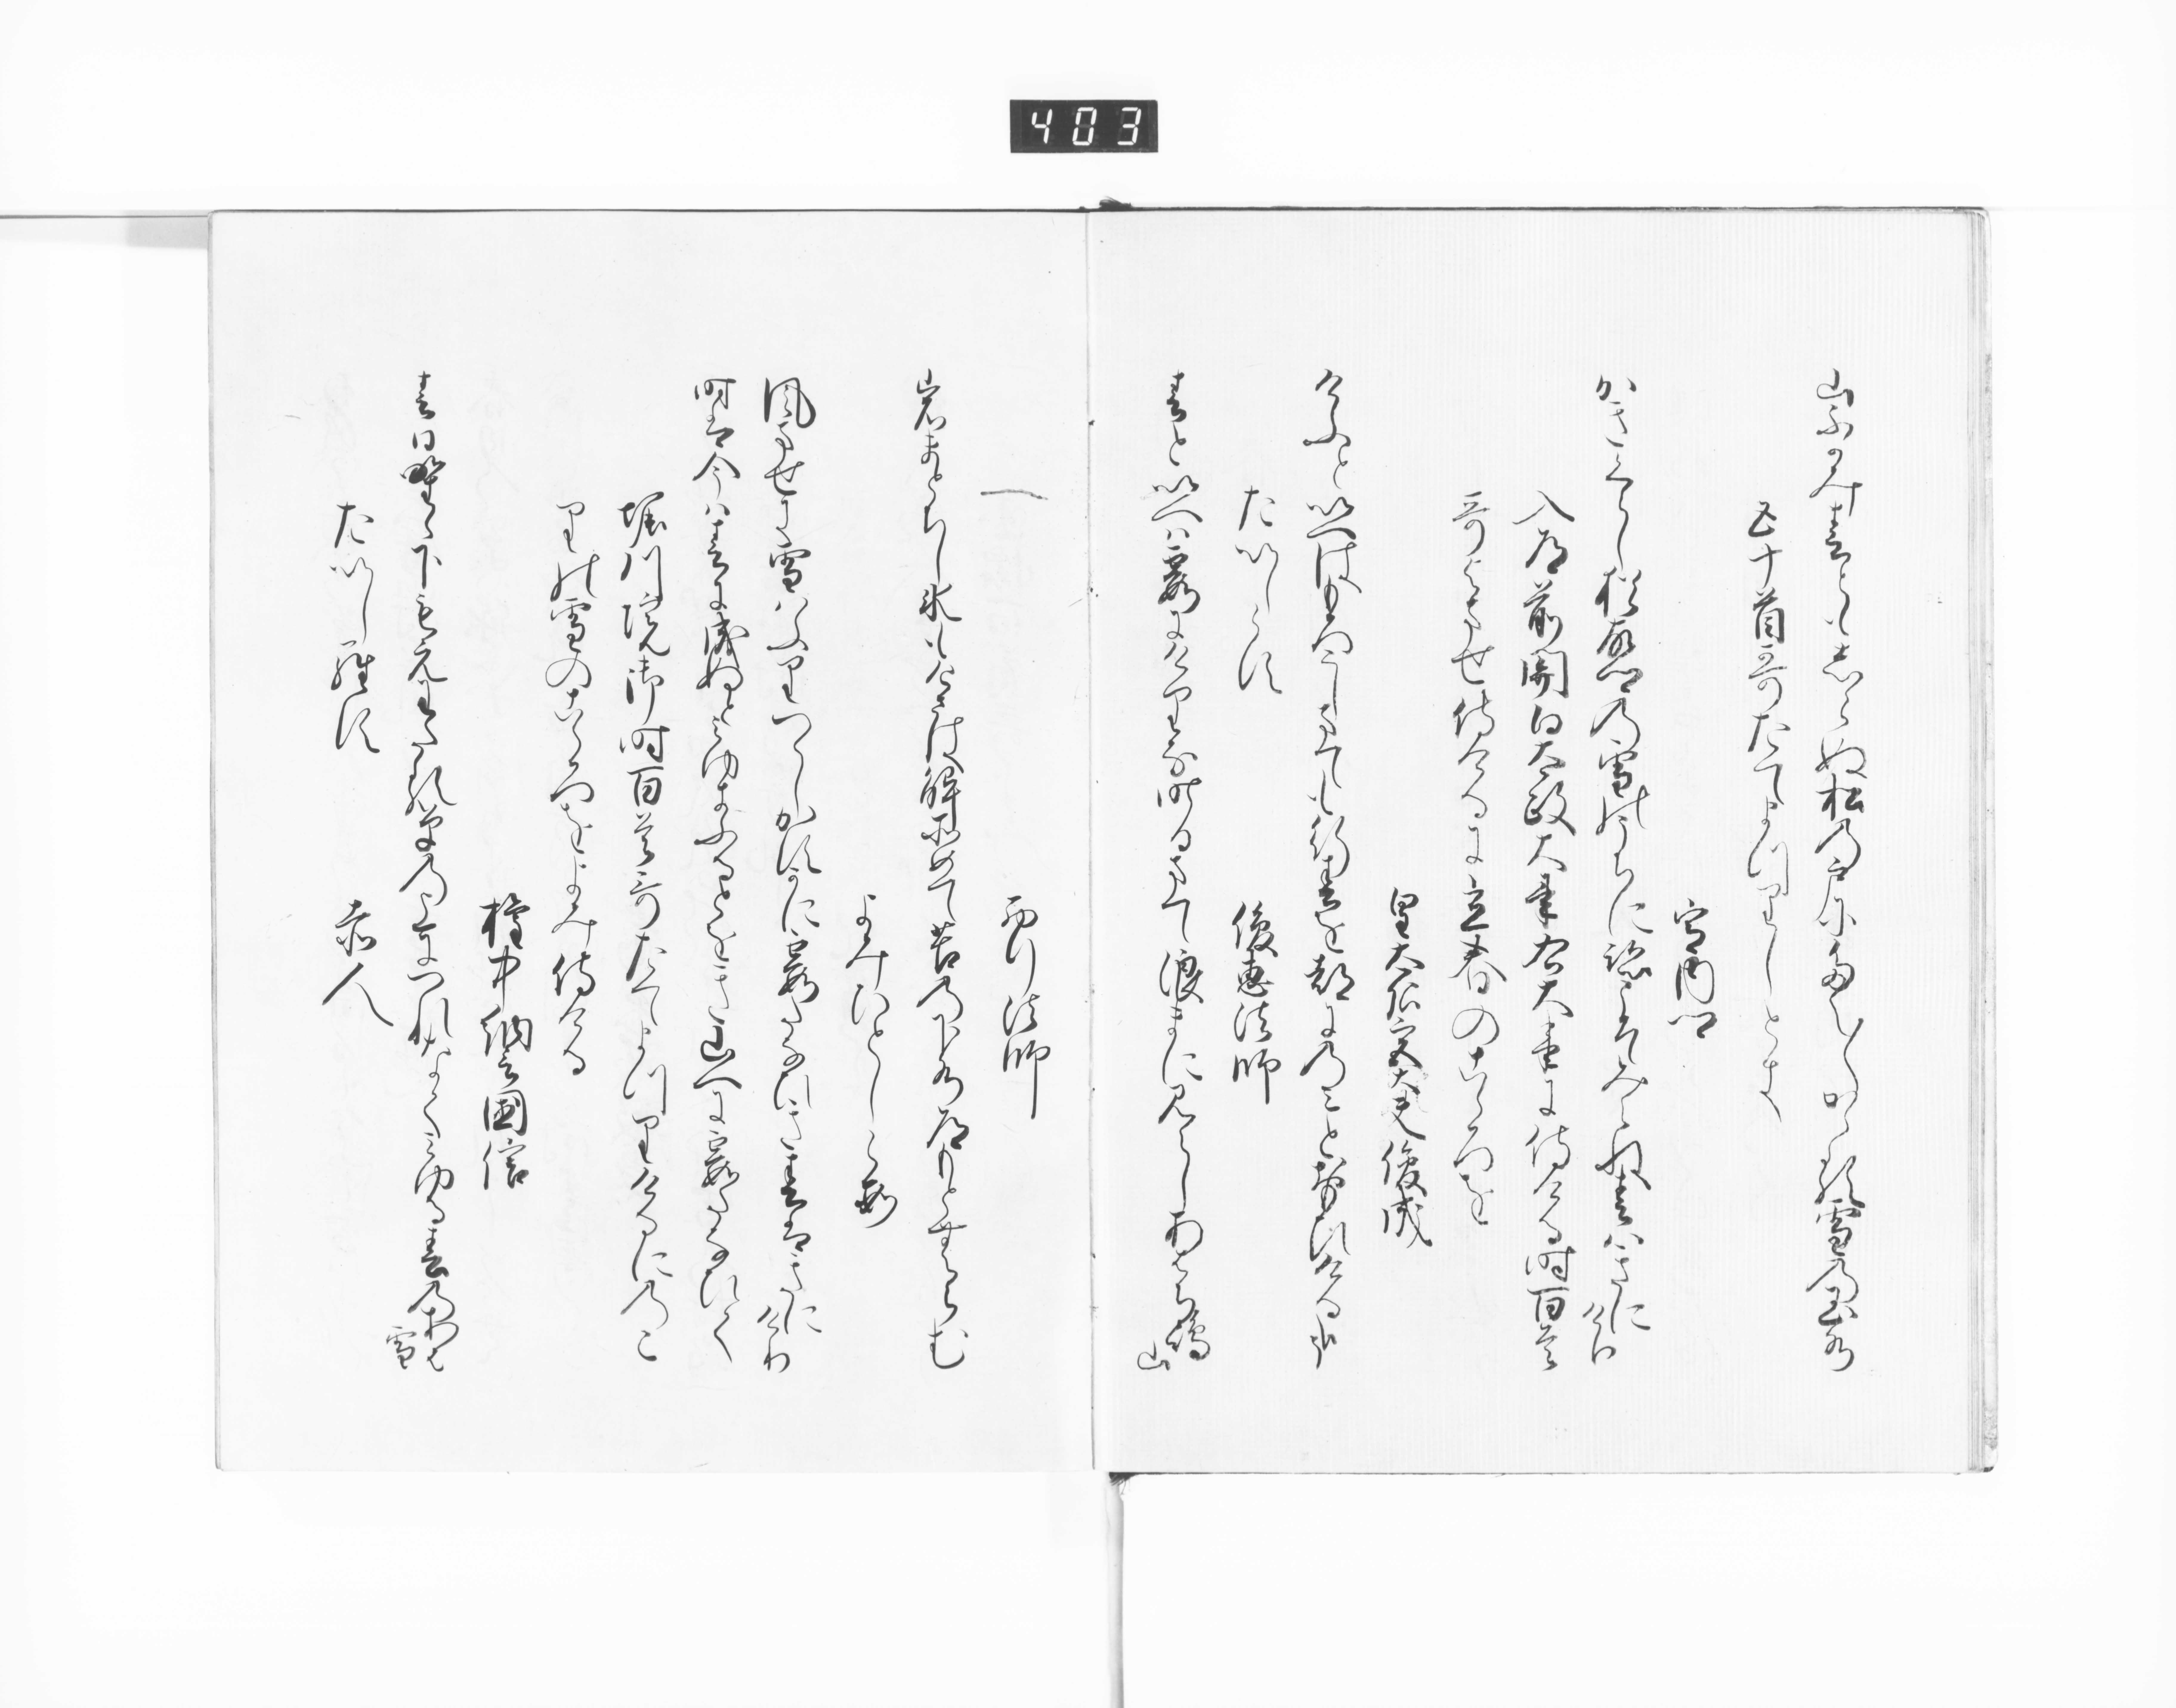 403
山ふかみ春ともしらぬ松の戸にたえ〱かゝる雪の玉水
五十首哥たてまつりしとき
宮内卿
かきくらし猶故郷の雪のうちに跡こそみえね春はきにけり
入道前関白太政大臣右大臣に侍ける時百首
哥よませ侍けるに立春のこゝろを
皇太后宮大夫俊成
けふといへはもろこしまても行春を都にのみとおもひけるかな
俊恵法師
たいしらす
春といへは霞にけりな昨日まて浪まに見えしあはち嶋山
西行法師
岩まとちし氷もけさは解初めて苔の下水道もとむらむ
よみひとしらす
風ませに雪はふりつゝしかすかに霞たなひき春はきにけり
時は今は春に成ぬとみゆきふるとをき山へに霞たなひく
堀川院御時百首哥たてまつりけるにのこ
りの雪のこゝろをよみ侍ける
権中納言国信
春日野の下もえわたる草の上につれなくみゆる春のあは雪
たいしらす
赤人